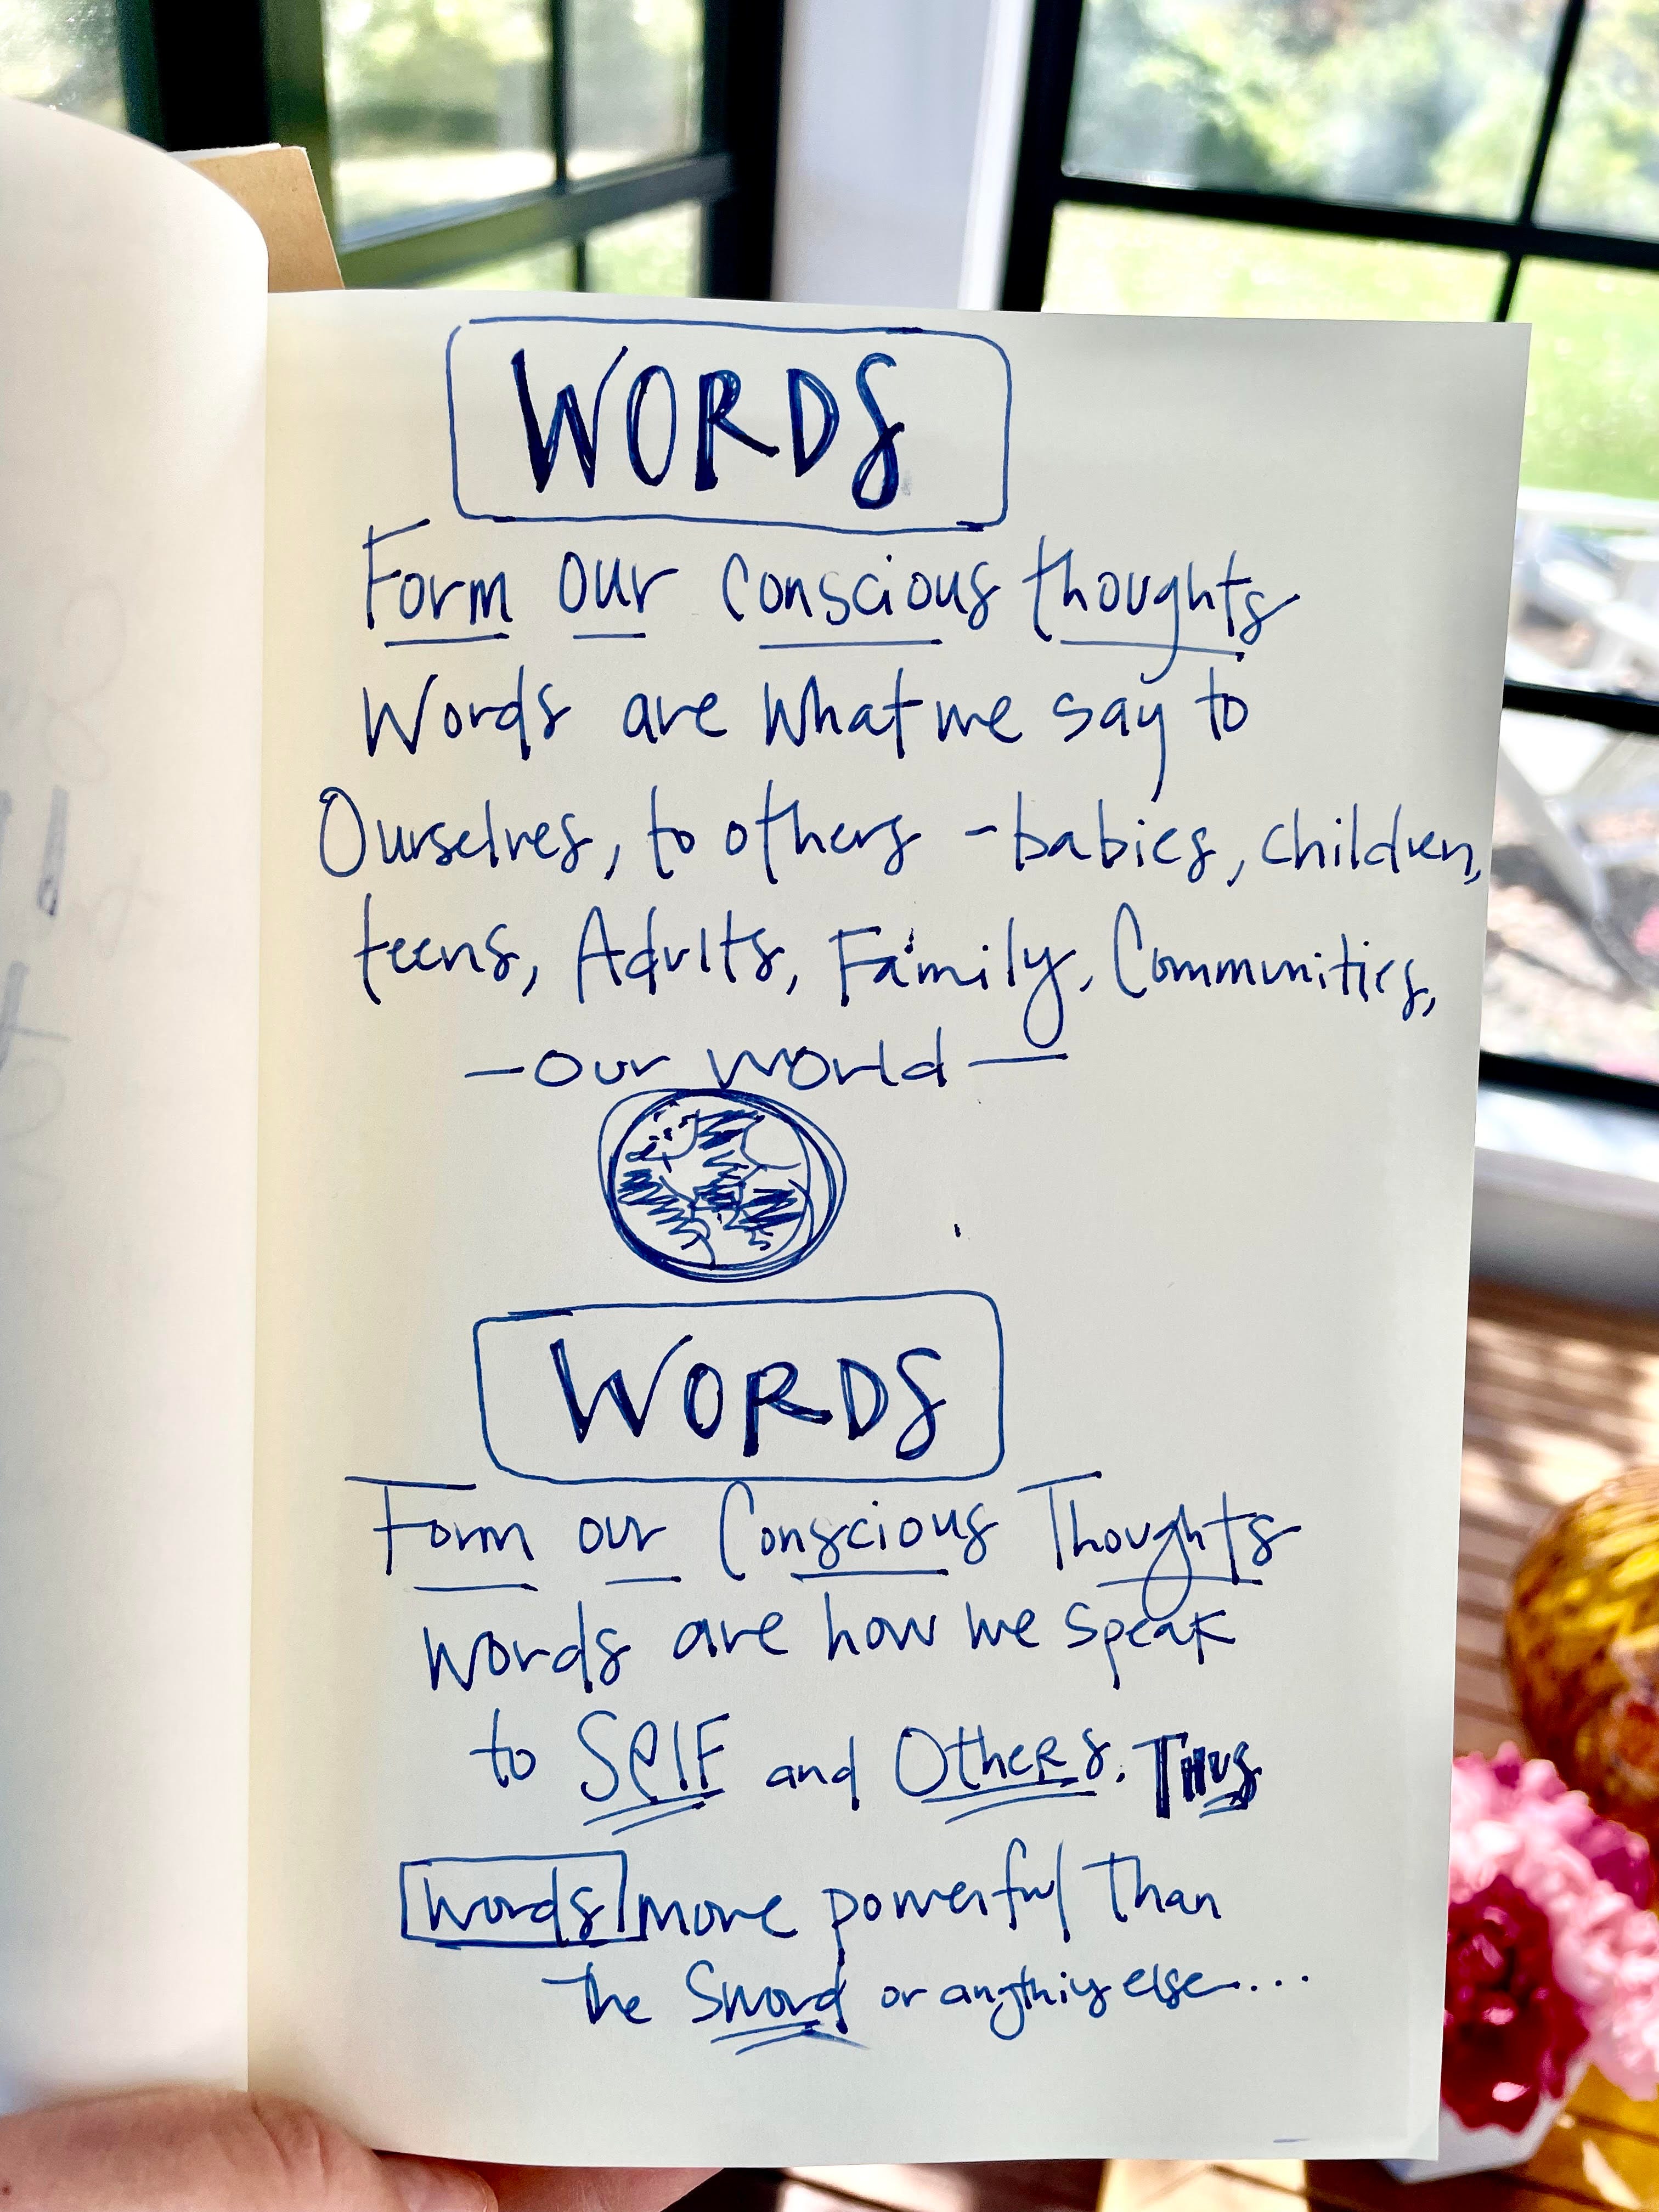 WORDS
Form our conscious thoughts
Words are what we say to
Ourselves, to others - babies, children,
teens, Adults, Family, Communities,
- our world -
WORDS
Form our Conscious Thoughts
words are how we speak
to SElF and OtheRs. THUS
words more powerful than
the Sword or anything else....